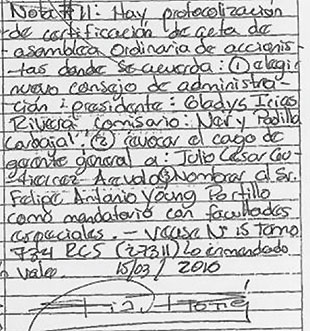 Nota #11: Hay protocolización
de certificación de acta de
asamblea Ordinaria de accionis-
tas donde se acuerda: ① elegir
nuevo consejo de administra-
ción: presidente: Gladys Irias
Rivera, Comisario: Nery Padilla
Carbajal. ② revocar el cago de
gerente general a: Julio Cesar Gu-
tierrez Arevalo ③ Nombrar al Sr.
Felipe Antonio Young Portillo
como mandatario con facultades
especiales. - Vease N° 15 tomo
734 RCS (27311) Lo enmendado
Vale. 15/03/2010